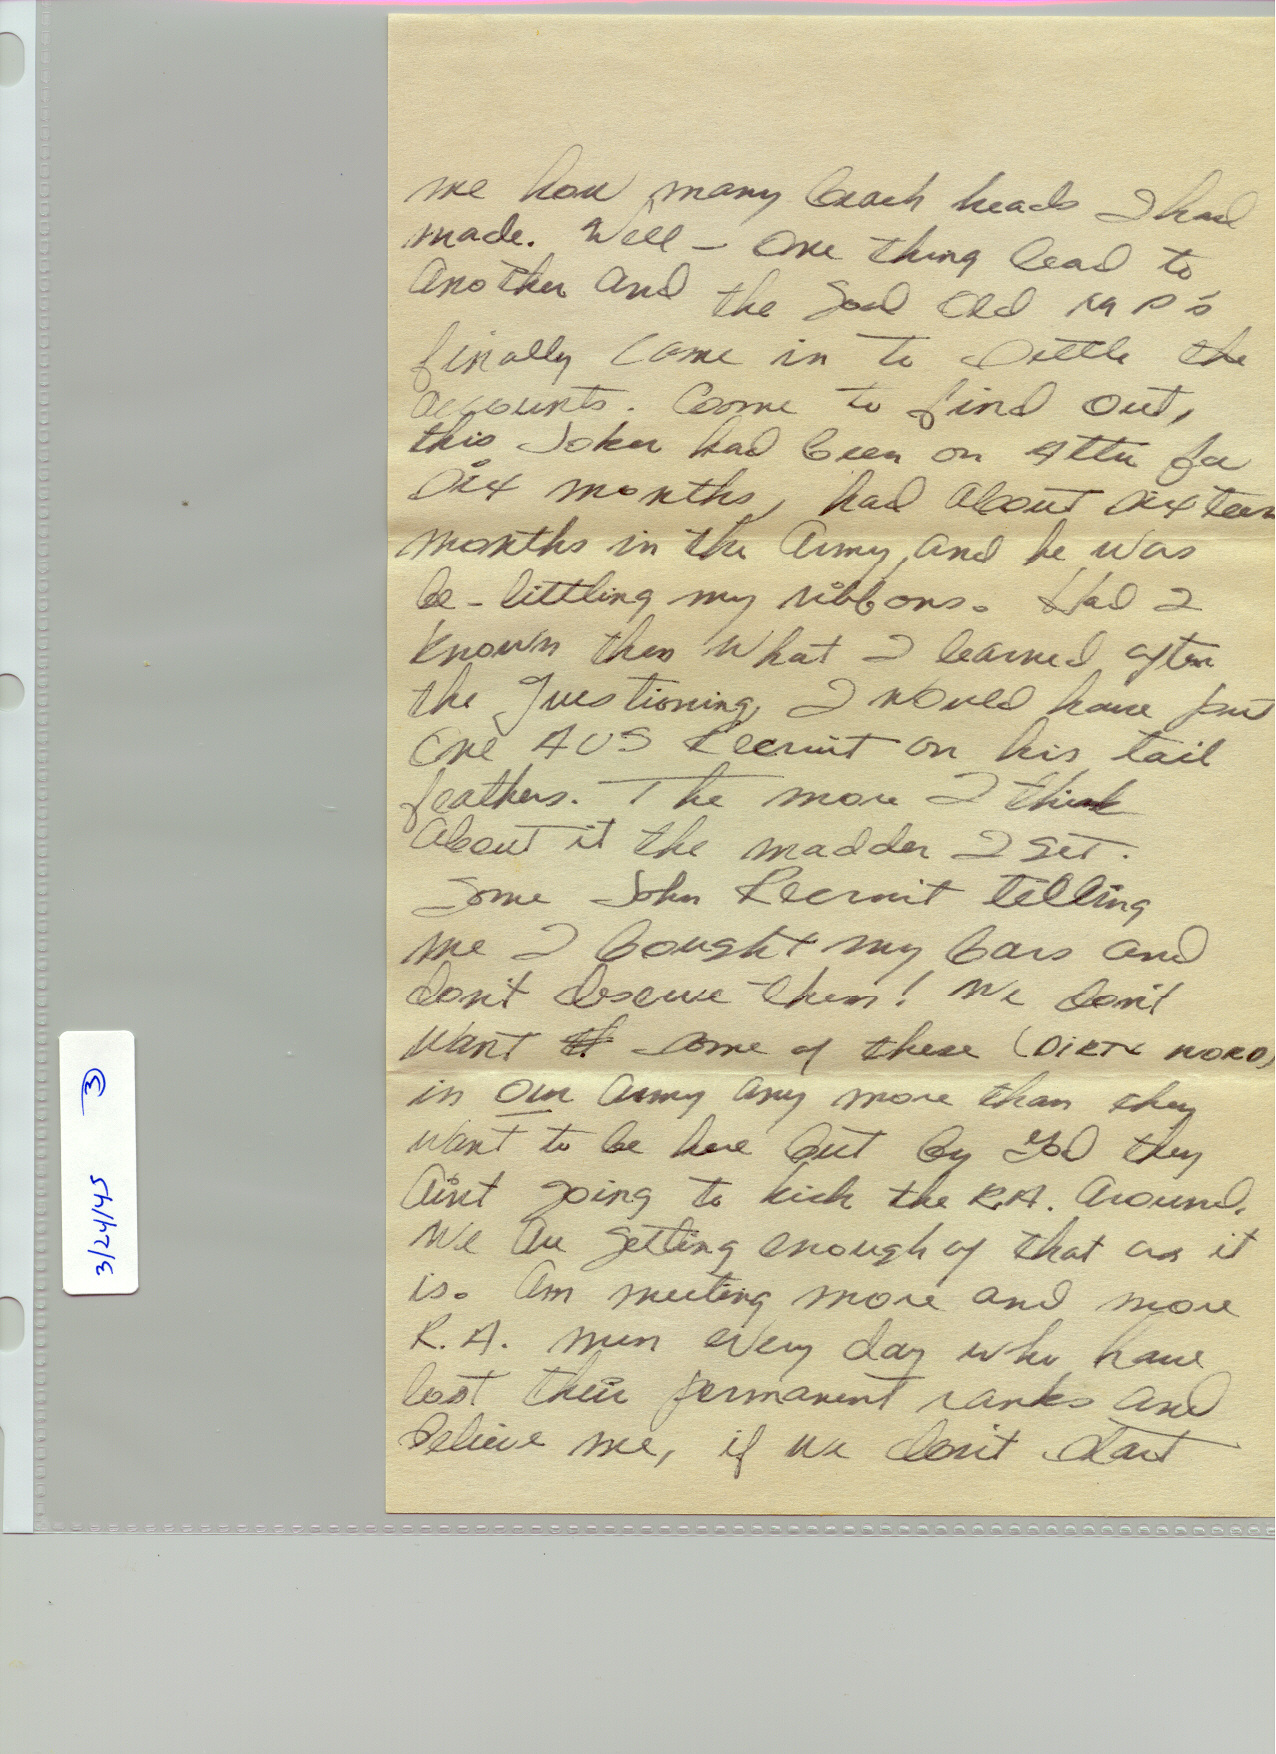 me how many beach heads I had
made. Well - one thing lead to
another and the Good Old MP's
finally came in to settle the
accounts. Come to find out,
this Joker had been on Attu for
six months, had about sixteen
months in the Army, and he was
be-littling my ribbons. Had I
known then what I learned after
the questioning, I would have put
one AUS Recruit on his tail
feathers. The more I think
about it the madder I get.
Some John Recruit telling
me I bought my bars and
don't deserve them! We don't
want some of these (DIRTY WORD)
in our army any more than they
want to be here but by God they
ain't going to kick the R.A. around.
We are getting enough of that as it
is. Am meeting more and more
R.A. men every day who have
lost their permanent ranks and
believe me, if we don't start
3/24/45 3